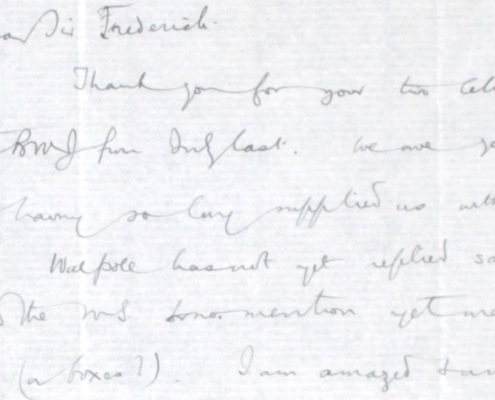 Sir Frederick.
Thank you for your two
BMJ from July last. We are
having so long supplied us
Walpole has not yet replied
the MS. mention yet
(or boxes?). I am amazed